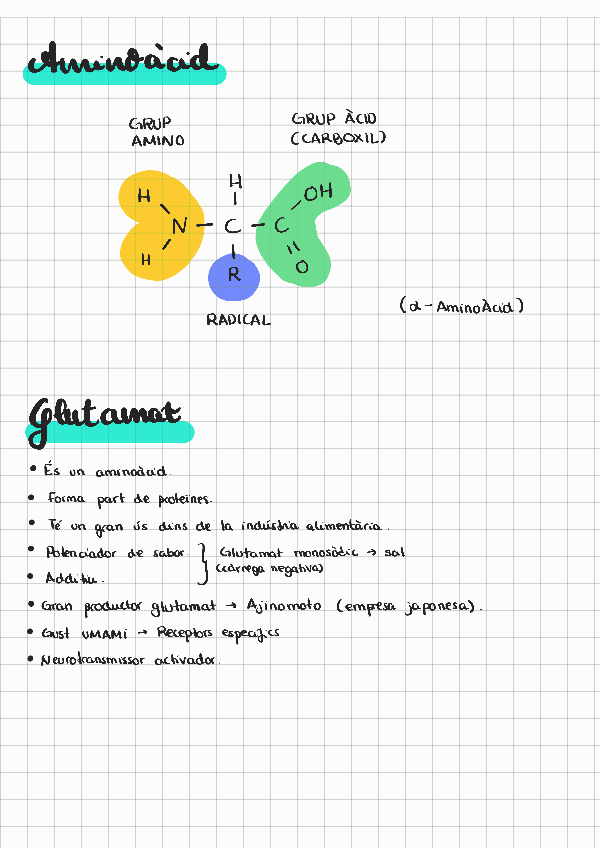 Aminoàcid
GRUP
AMINO
GRUP ÀCID
(CARBOXIL)
H
H
OH
N — C — C
H
R
O
RADICAL
(α-AminoÀcid)
Glutamat
• És un aminoàcid.
• Forma part de proteïnes.
• Té un gran ús dins de la indústria alimentària.
• Potenciador de sabor. } Glutamat monosòdic → sal
(càrrega negativa)
• Additiu.
• Gran productor glutamat → Ajinomoto (empresa japonesa).
• Gust UMAMI → Receptors específics
• Neurotransmissor activador.